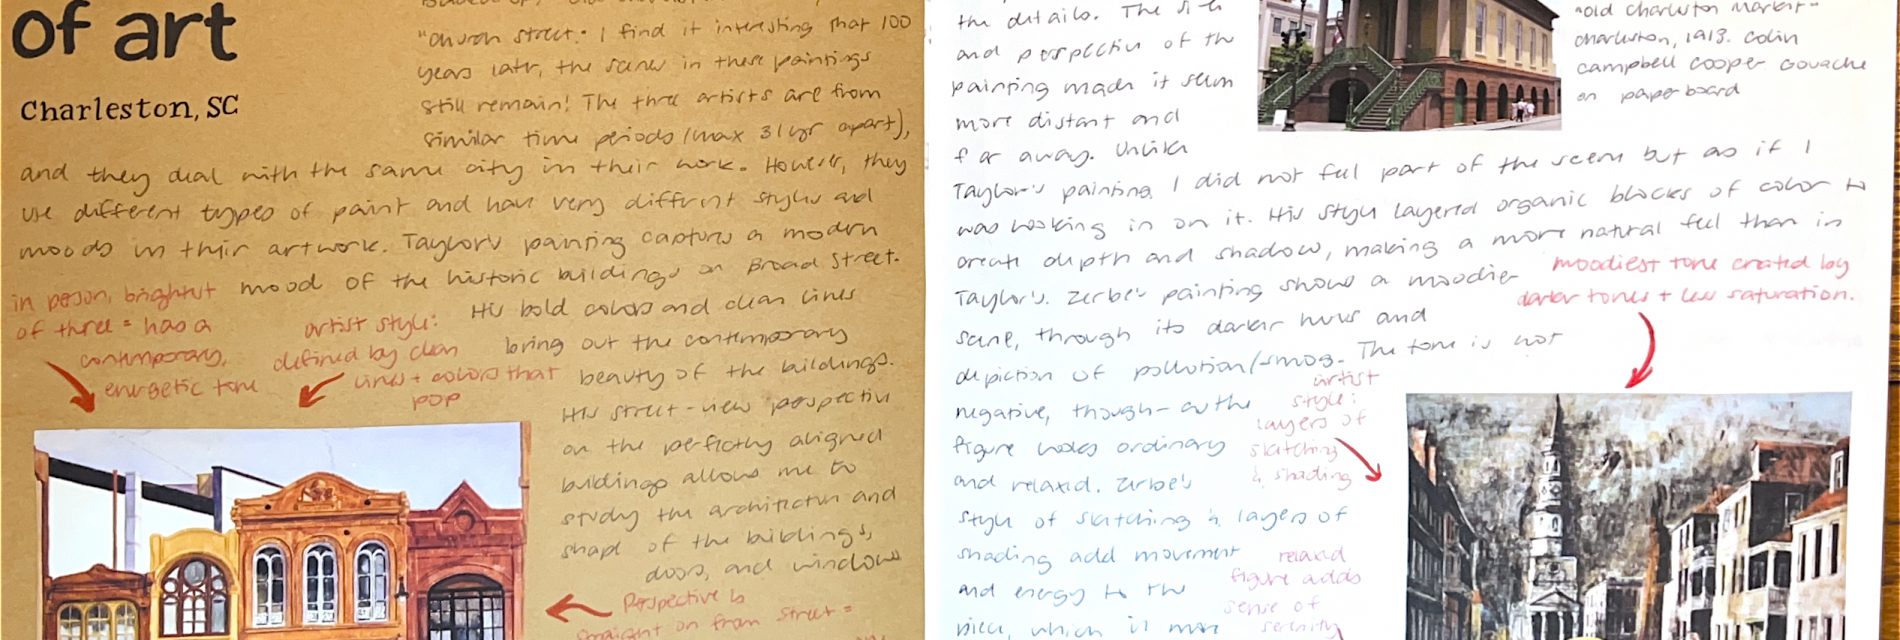 of art
Charleston, SC
"Church street." I find it interesting that 100
years latr, the scenes in these paintings
still remain! The three artists are from
similar time periods (max 31yr apart),
and they deal with the same city in their work. However, they
use different types of paint and have very different styles and
moods in their artwork. Taylor's painting captures a modern
mood of the historic buildings on Broad Street.
His bold colors and clean lines
bring out the contemporary
beauty of the buildings.
His street-view perspective
on the perfectly aligned
buildings allows me to
study the architecture and
shape of the buildings,
doors, and windows
in person, brightest
of three = has a
contemporary,
energetic tone
artist style:
defined by clean
lines + colors that
pop
Perspective is
straight on from street =
the details. The
and perspective of the
painting made it seem
more distant and
far away. Unlike
Taylor's painting, I did not feel part of the scene but as if I
was looking in on it. His style layered organic blocks of color to
create depth and shadow, making a more natural feel than in
Taylor's. Zerbe's painting shows a moodier
scene, through its darker hues and
depiction of pollution/smog. The tone is not
negative, though- as the
figure looks ordinary
and relaxed. Zerbe's
style of sketching & layers of
shading add movement
and energy to the
piece, which is more
"Old Charleston Market"
Charleston, 1913. Colin
Campbell Cooper Gouache
on paperboard
moodiest tone created by
darker tones + less saturation.
artist
style:
layers of
sketching
& shading
relaxed
figure adds
sense of
serenity